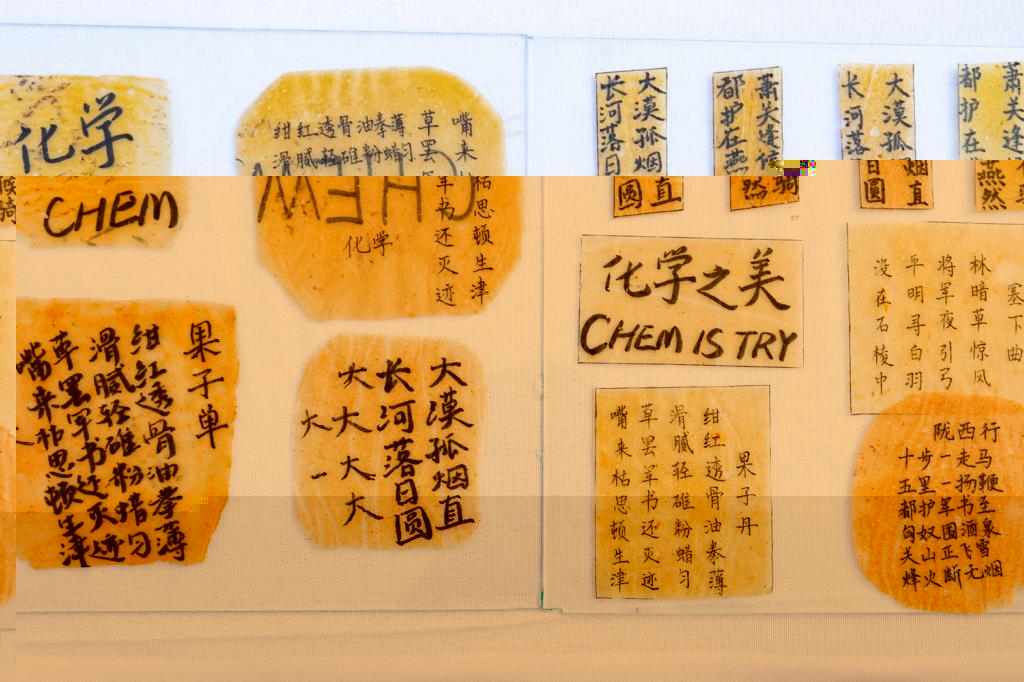 化学
CHEM
绀红透骨油拳薄
滑腻轻碓粉蜡匀
草罢
军书还灭迹
嘴来
枯思顿生津
CHEM
化学
果子单
绀红透骨油拳薄
滑腻轻碓粉蜡匀
草罢军书还灭迹
嘴来枯思顿生津
大漠孤烟直
长河落日圆
大
大
大
大
大
一
大漠孤烟直
长河落日圆
萧关逢候骑
都护在燕然
大漠孤烟直
长河落日圆
萧关逢
都护在燕然
化学之美
CHEM IS TRY
塞下曲
林暗草惊风
将军夜引弓
平明寻白羽
没在石棱中
果子丹
绀红透骨油拳薄
滑腻轻碓粉蜡匀
草罢军书还灭迹
嘴来枯思顿生津
陇西行
十步一走马
五里一扬鞭
都护军书至
匈奴围酒泉
关山正飞雪
烽火断无烟